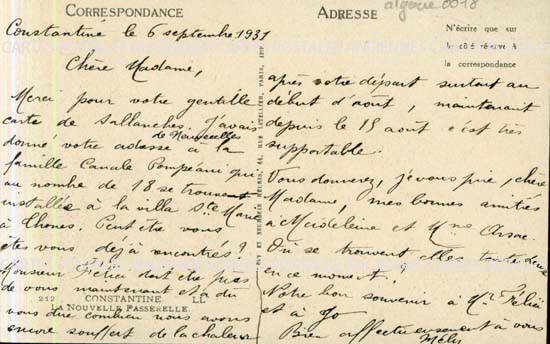 CORRESPONDANCE
Constantine le 6 septembre 1931
Chère Madame,
Merci pour votre gentille
carte de Sallanches. J'avais
de Nouvelles
donné votre adresse à la
famille Canale Pompéani qui
au nombre de 18 se trouvent
installés à la villa Ste Marie
à Thones. Peut être vous
êtes vous déjà encontrés ?
Monsieur Félix doit être près
de vous maintenant et a dû
vous dire combien nous avons
encore souffert de la chaleur
212 CONSTANTINE
LA NOUVELLE PASSERELLE.
LL
ADRESSE
algerie 0018
N'écrire que sur
le côté réservé à
la correspondance
après votre départ surtout au
début d'août, maintenant
depuis le 15 août c'est très
supportable.
Vous donnerez, je vous prie, chère
Madame, mes bonnes amitiés
à Maideleine et Mme Orsac.
Où se trouvent elles toute deux
en ce moment ?
Notre bon souvenir à Mr Félix
et à Jo
Bien affectueusement à vous